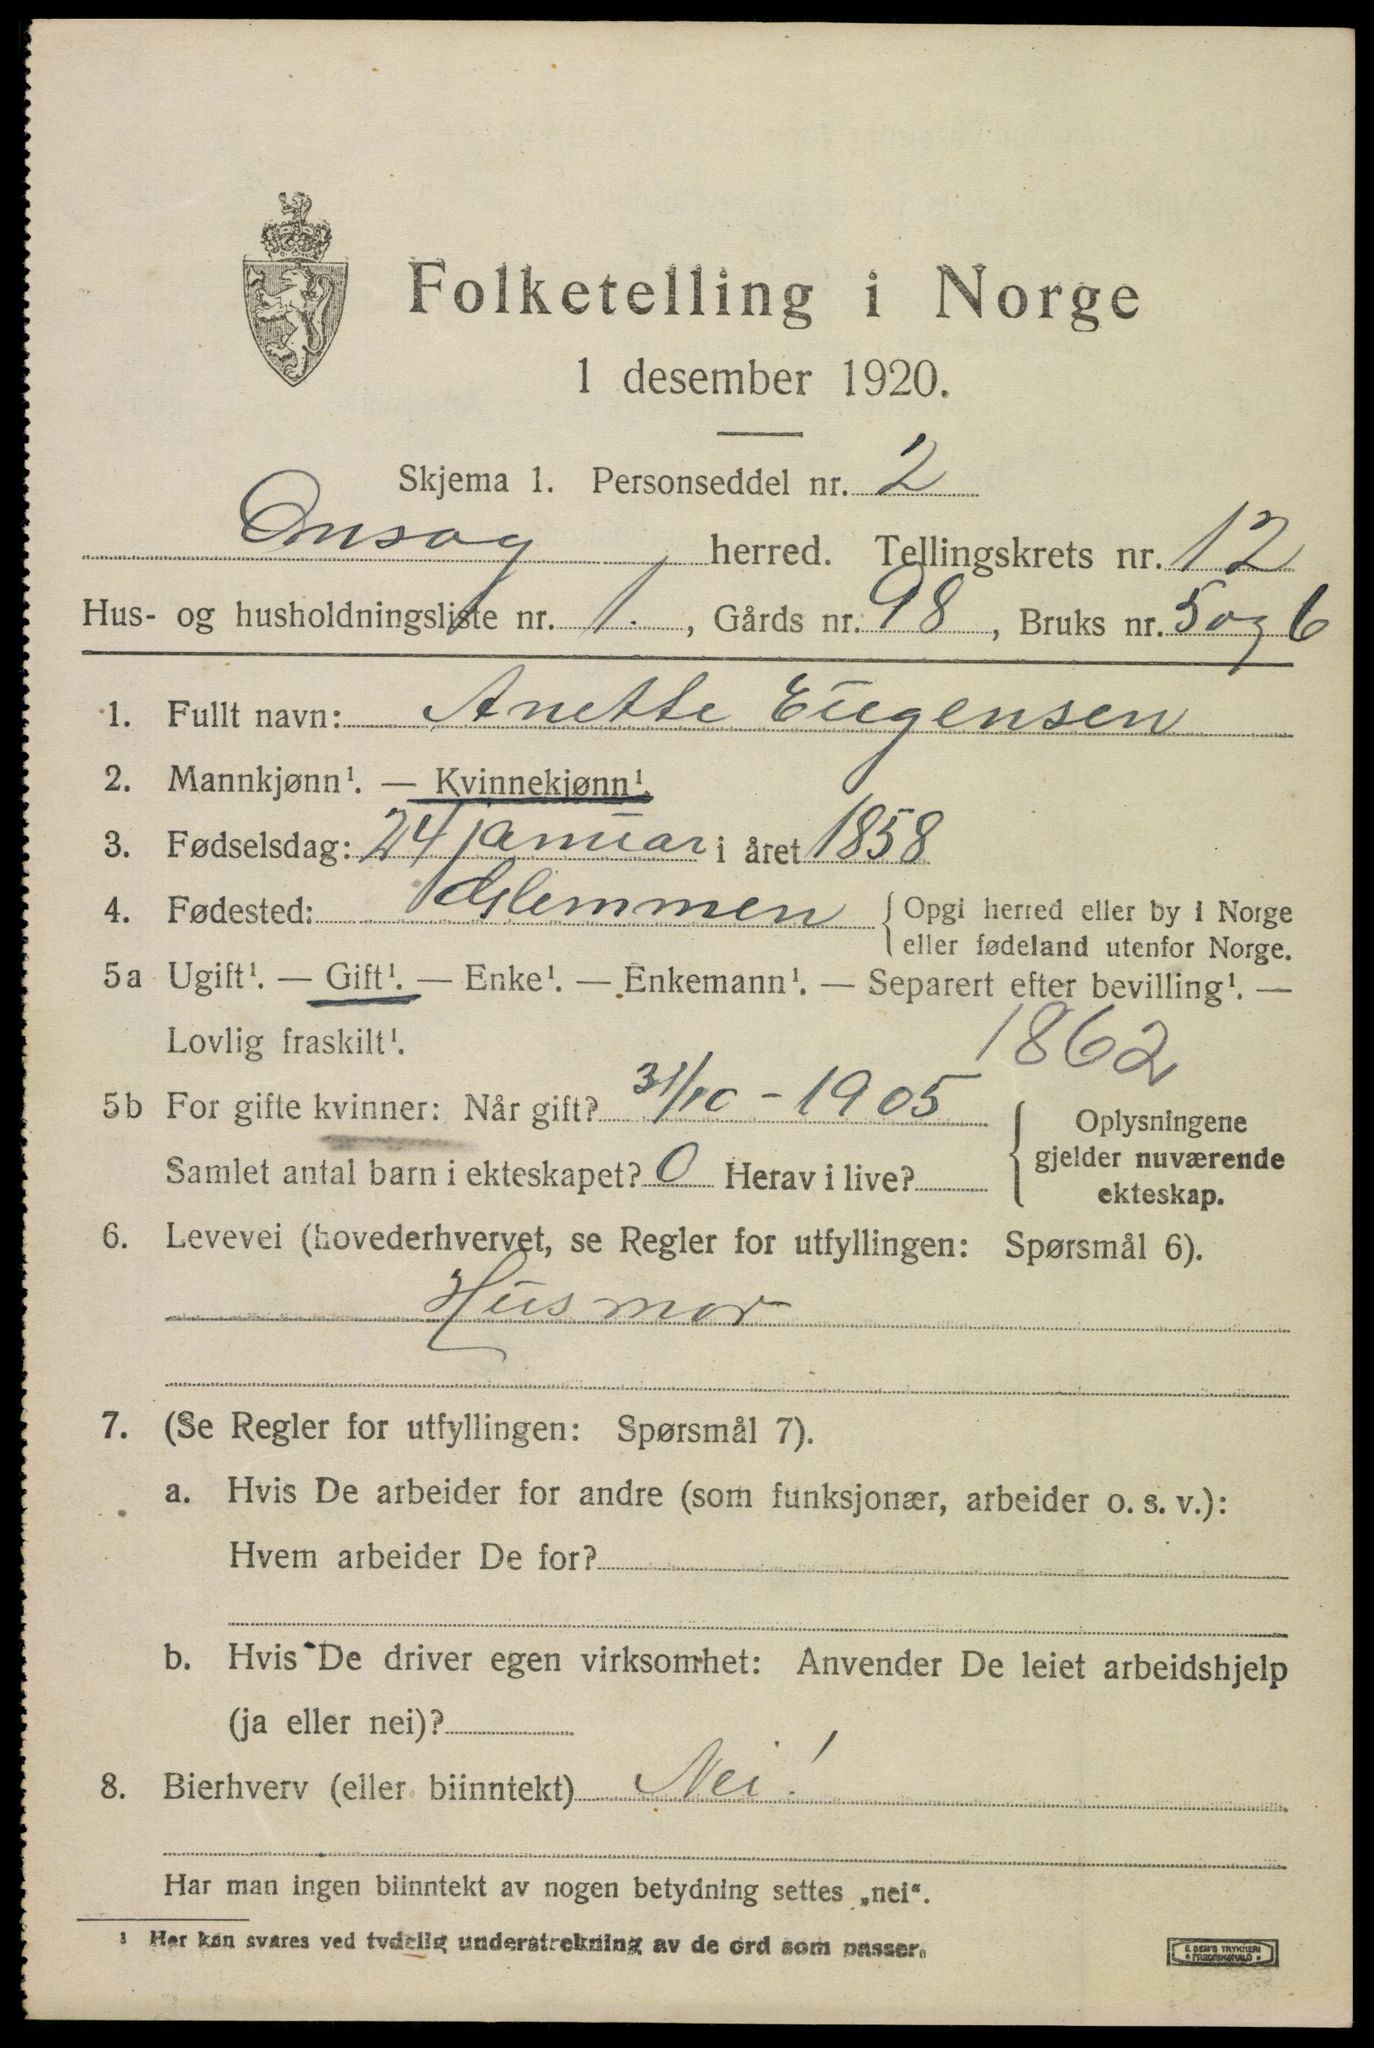 Folketelling i Norge
1 desember 1920.
Skjema 1. Personseddel nr. 2
Onsøy herred. Tellingskrets nr. 12
Hus- og husholdningsliste nr. 1., Gårds nr. 98, Bruks nr. 5 og 6
1. Fullt navn: Anette Eugensen
2. Mannkjønn¹. — Kvinnekjønn¹.
3. Fødselsdag: 24 januar i året 1858
4. Fødested: Glemmen { Opgi herred eller by i Norge
eller fødeland utenfor Norge.
5a Ugift¹. — Gift¹. — Enke¹. — Enkemann¹. — Separert efter bevilling¹. —
Lovlig fraskilt¹.
1862
5b For gifte kvinner: Når gift? 31/10 - 1905
Samlet antal barn i ekteskapet? 0 Herav i live?
{ Oplysningene
gjelder nuværende
ekteskap.
6. Levevei (hovederhvervet, se Regler for utfyllingen: Spørsmål 6).
Husmor
7. (Se Regler for utfyllingen: Spørsmål 7).
a. Hvis De arbeider for andre (som funksjonær, arbeider o. s. v.):
Hvem arbeider De for?
b. Hvis De driver egen virksomhet: Anvender De leiet arbeidshjelp
(ja eller nei)?
8. Bierhverv (eller biinntekt) Nei!
Har man ingen biinntekt av nogen betydning settes „nei“.
¹ Her kan svares ved tydelig understrekning av de ord som passer.
E. SEM'S TRYKKERI
FREDRIKSHALD